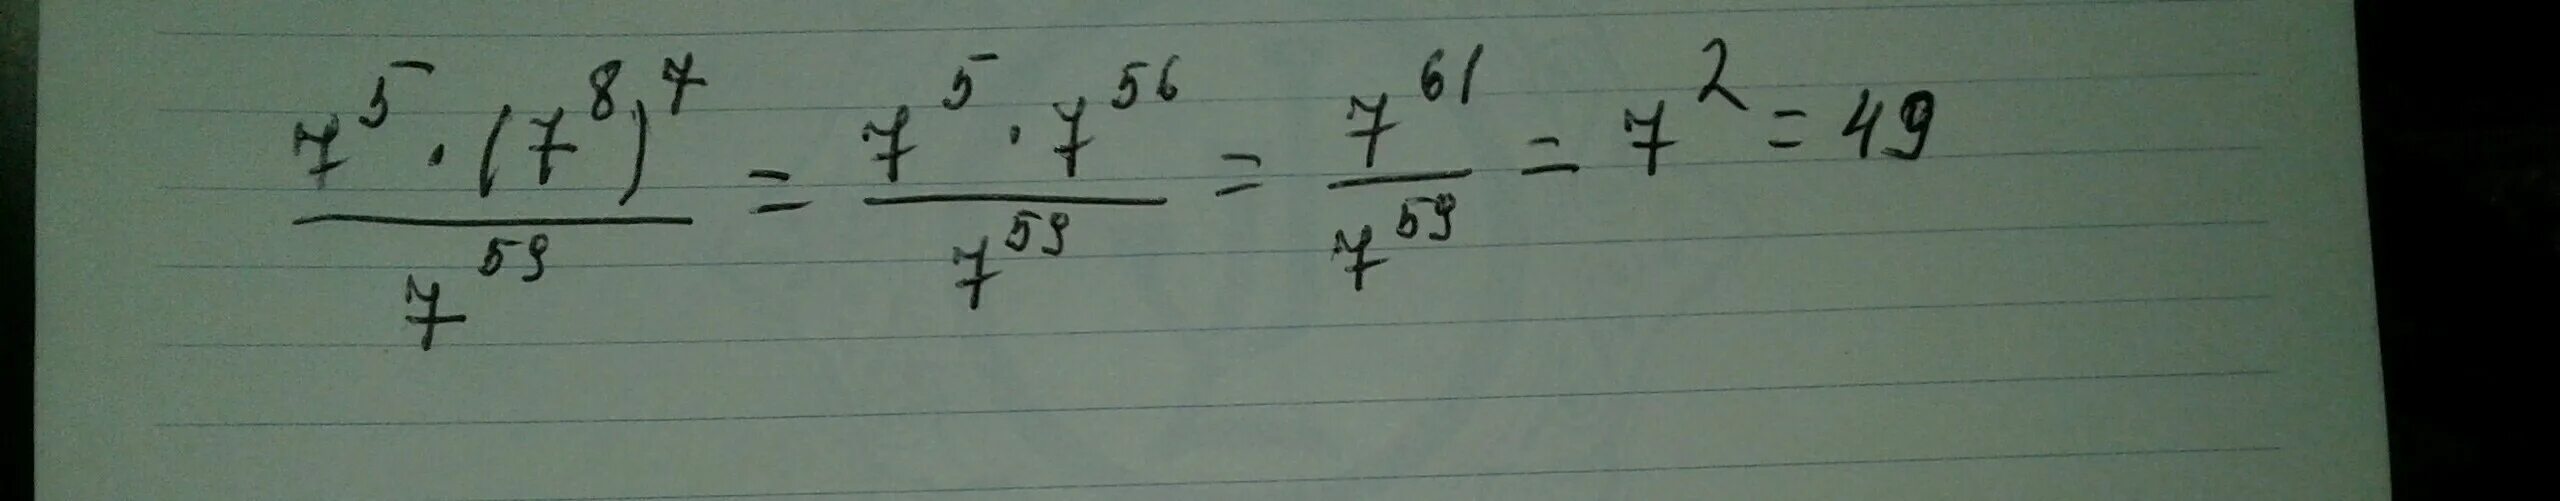 7^5 · (7^8)^7 / 7^59 = 7^5 · 7^56 / 7^59 = 7^61 / 7^59 = 7^2 = 49